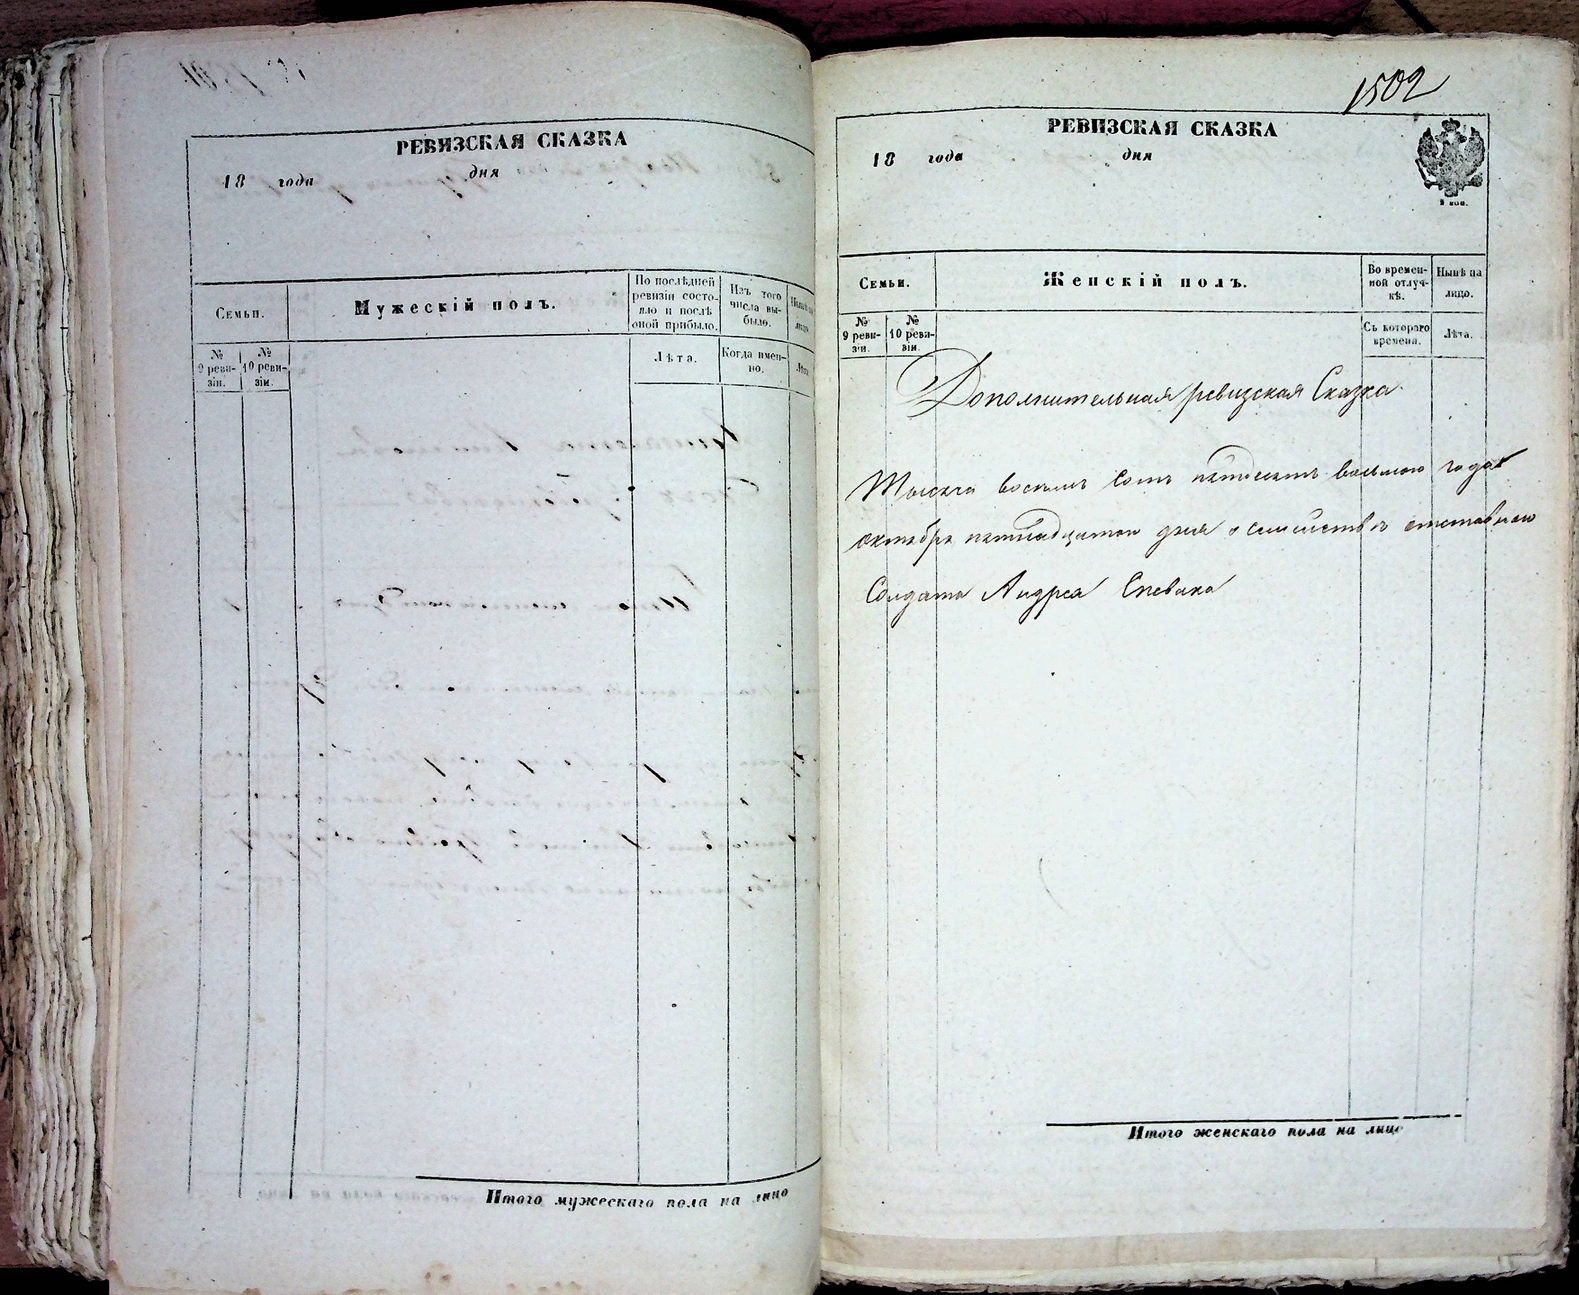 РЕВИЗСКАЯ СКАЗКА
18 года дня
Семьи.
Мужескій полъ.
По послѣдней ревизіи состояло и послѣ оной прибыло.
Изъ того числа выбыло.
№ 9 ревизіи.
№ 10 ревизіи.
Лѣта.
Когда именно.
Лѣта
Итого мужескаго пола на лицо
1502
РЕВИЗСКАЯ СКАЗКА
18 года дня
Семьи.
Женскій полъ.
Во временной отлучкѣ.
Нынѣ на лицо.
№ 9 ревизіи.
№ 10 ревизіи.
Съ котораго времени.
Лѣта.
Дополнительная ревизская Сказка
Тысяча восемь сотъ пятдесятъ восьмаго года
октября пятнадцатаго дня о семействѣ отставнаго
Солдата Андрея Спевака
Итого женскаго пола на лицо